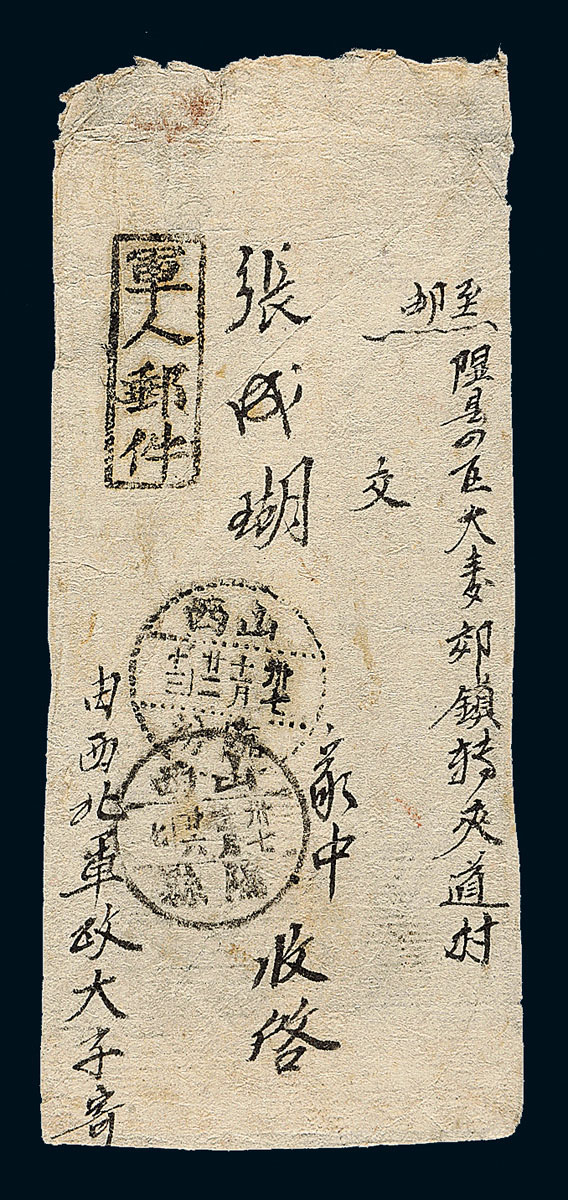 邮至
隰县四区大麦郊镇转交道村
交
張成瑚
家中
收啓
軍人郵件
山西
卅七
十一月
廿二
十三
山西
卅七
廿六
隰縣
由西北軍政大学寄